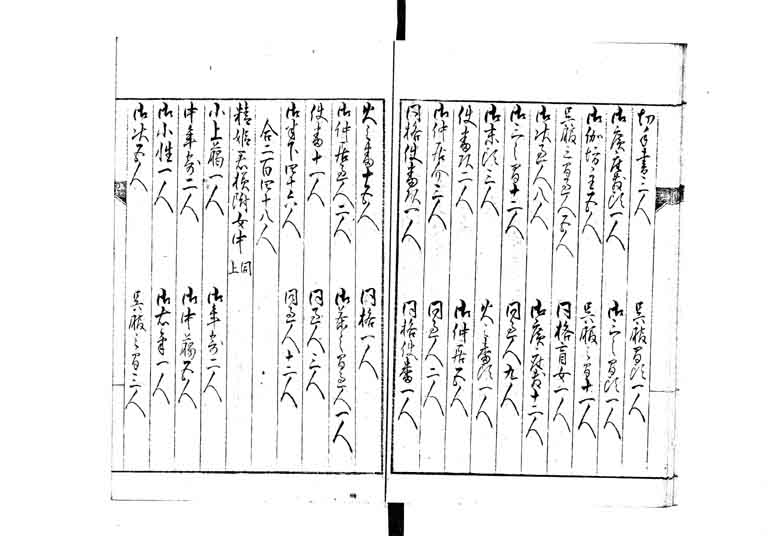 切手書二人　呉服間頭一人
御広座敷頭一人　御三之間頭一人
御伽坊主五人　呉服之間十一人
呉服之間並人五人　同格盲女一人
御次並人八人　御広座敷十二人
御三之間十二人　同並人九人
御末頭三人　火之番頭一人
使番頭二人　御仲居五人
御仲居介三人　同並人二人
同格使番頭一人　同格使番一人
火之番十五人　同格一人
御仲居並人二人　御茶之間並人一人
使番十一人　同並人三人
御半下四十六人　同並人十二人
合二百四十八人
精姫君様附女中　同上
小上﨟一人　御年寄二人
中年寄二人　御中﨟五人
御小性一人　御右筆一人
御次五人　呉服之間三人